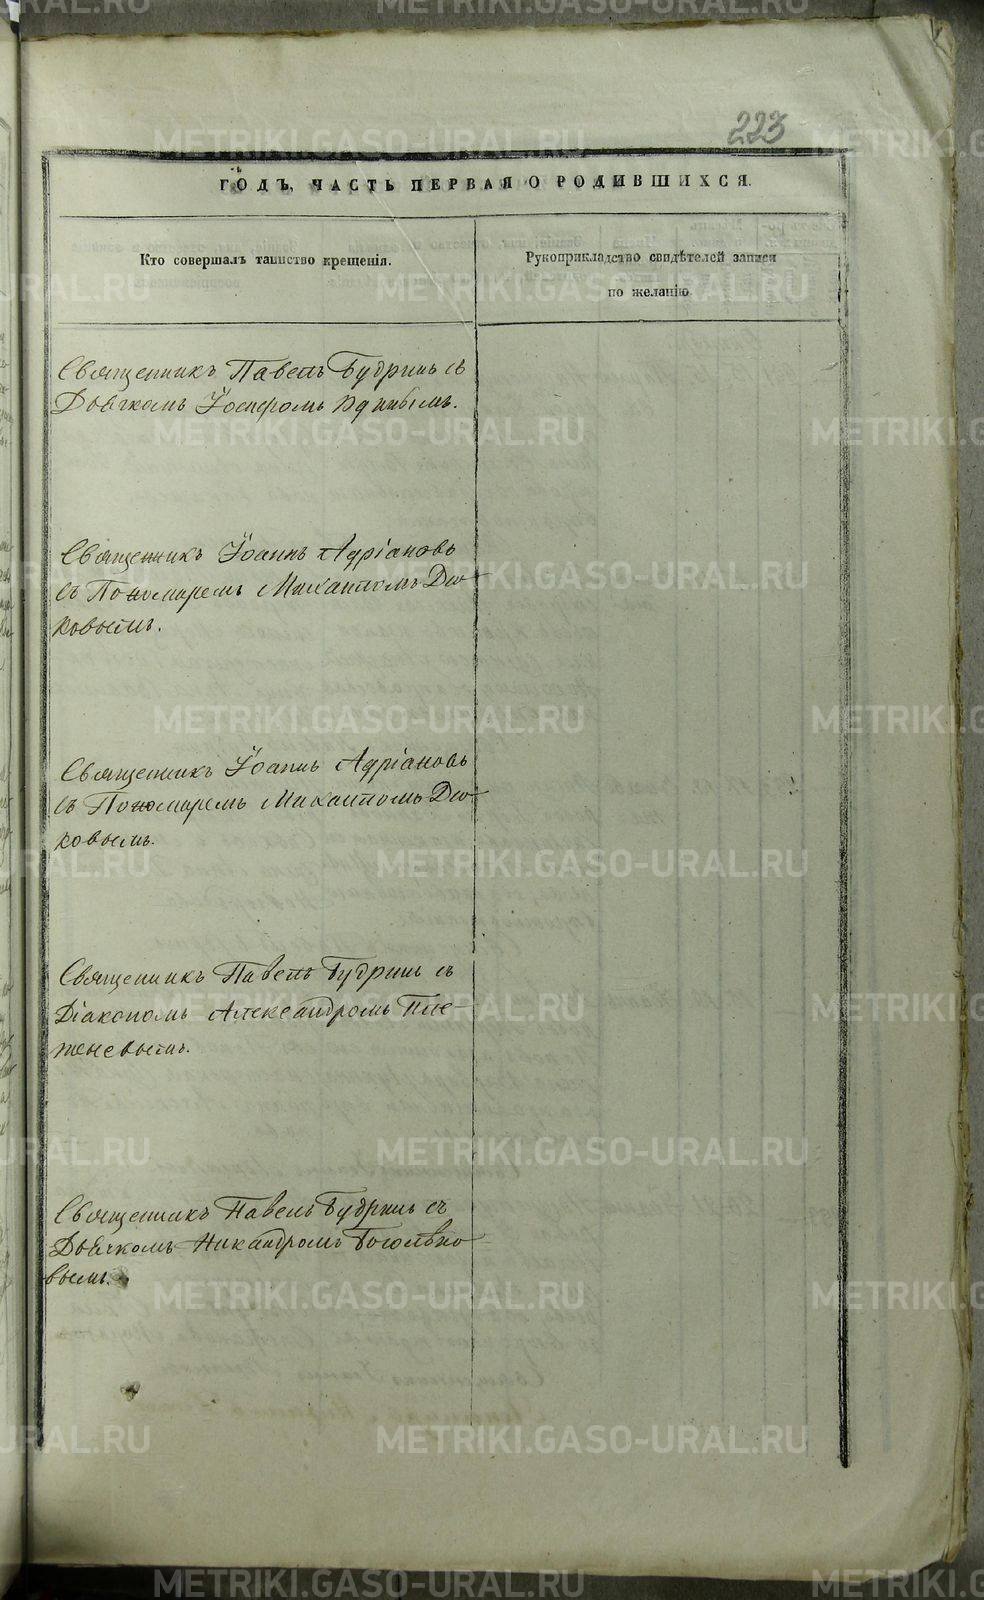 223
ГОДЪ, ЧАСТЬ ПЕРВАЯ О РОДИВШИХСЯ.
Кто совершалъ таинство крещенія.
Рукоприкладство свидѣтелей записи
по желанію.
Священникъ Павелъ Будринъ съ
Дьячкомъ Іосифомъ
Священникъ Іоаннъ Адріановъ
съ Пономаремъ
ковымъ.
Священникъ Іоаннъ Адріановъ
съ Пономаремъ
ковымъ.
Священникъ Павелъ Будринъ съ
Діакономъ Александромъ
женевымъ.
Священникъ Павелъ Будринъ съ
Дьячкомъ Никандромъ
вымъ.
METRIKI.GASO-URAL.RU